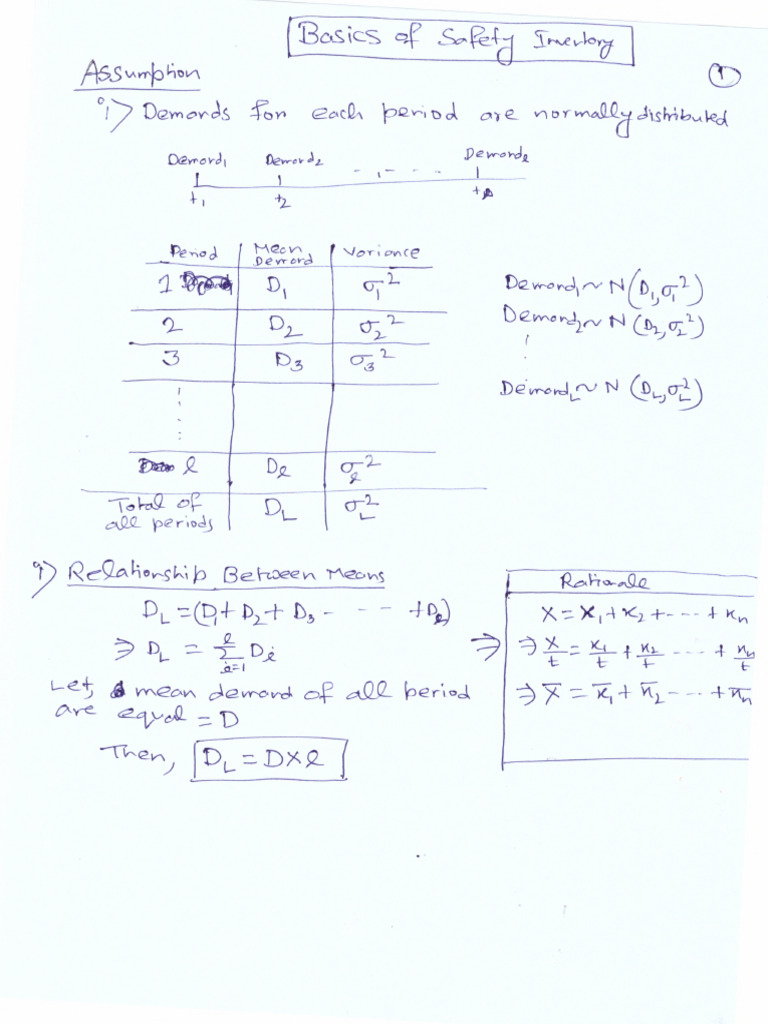 Basics of Safety Inventory
Assumption
1
i) Demands for each period are normally distributed
Demand₁ Demand₂ - - . - - - Demandℓ
t₁ t₂
Period | Mean Demand | Variance
1 D₁ σ₁²
2 D₂ σ₂²
3 D₃ σ₃²
ℓ Dℓ σℓ²
Total of all periods D_L σ_L²
Demand₁ ~ N (D₁, σ₁²)
Demand₂ ~ N (D₂, σ₂²)
Demand_L ~ N (D_L, σ_L²)
i) Relationship Between Means
D_L = (D₁ + D₂ + D₃ - - - - + Dℓ)
⇒ D_L = ℓ Σ i=1 Di
Let, mean demand of all period
are equal = D
Then, D_L = D×ℓ
Rationale
X = x₁ + x₂ + - - - - + xn
⇒ ⇒ X/t = x₁/t + x₂/t - - - - + xn/t
⇒ X̄ = x̄₁ + x̄₂ - - - - + x̄n